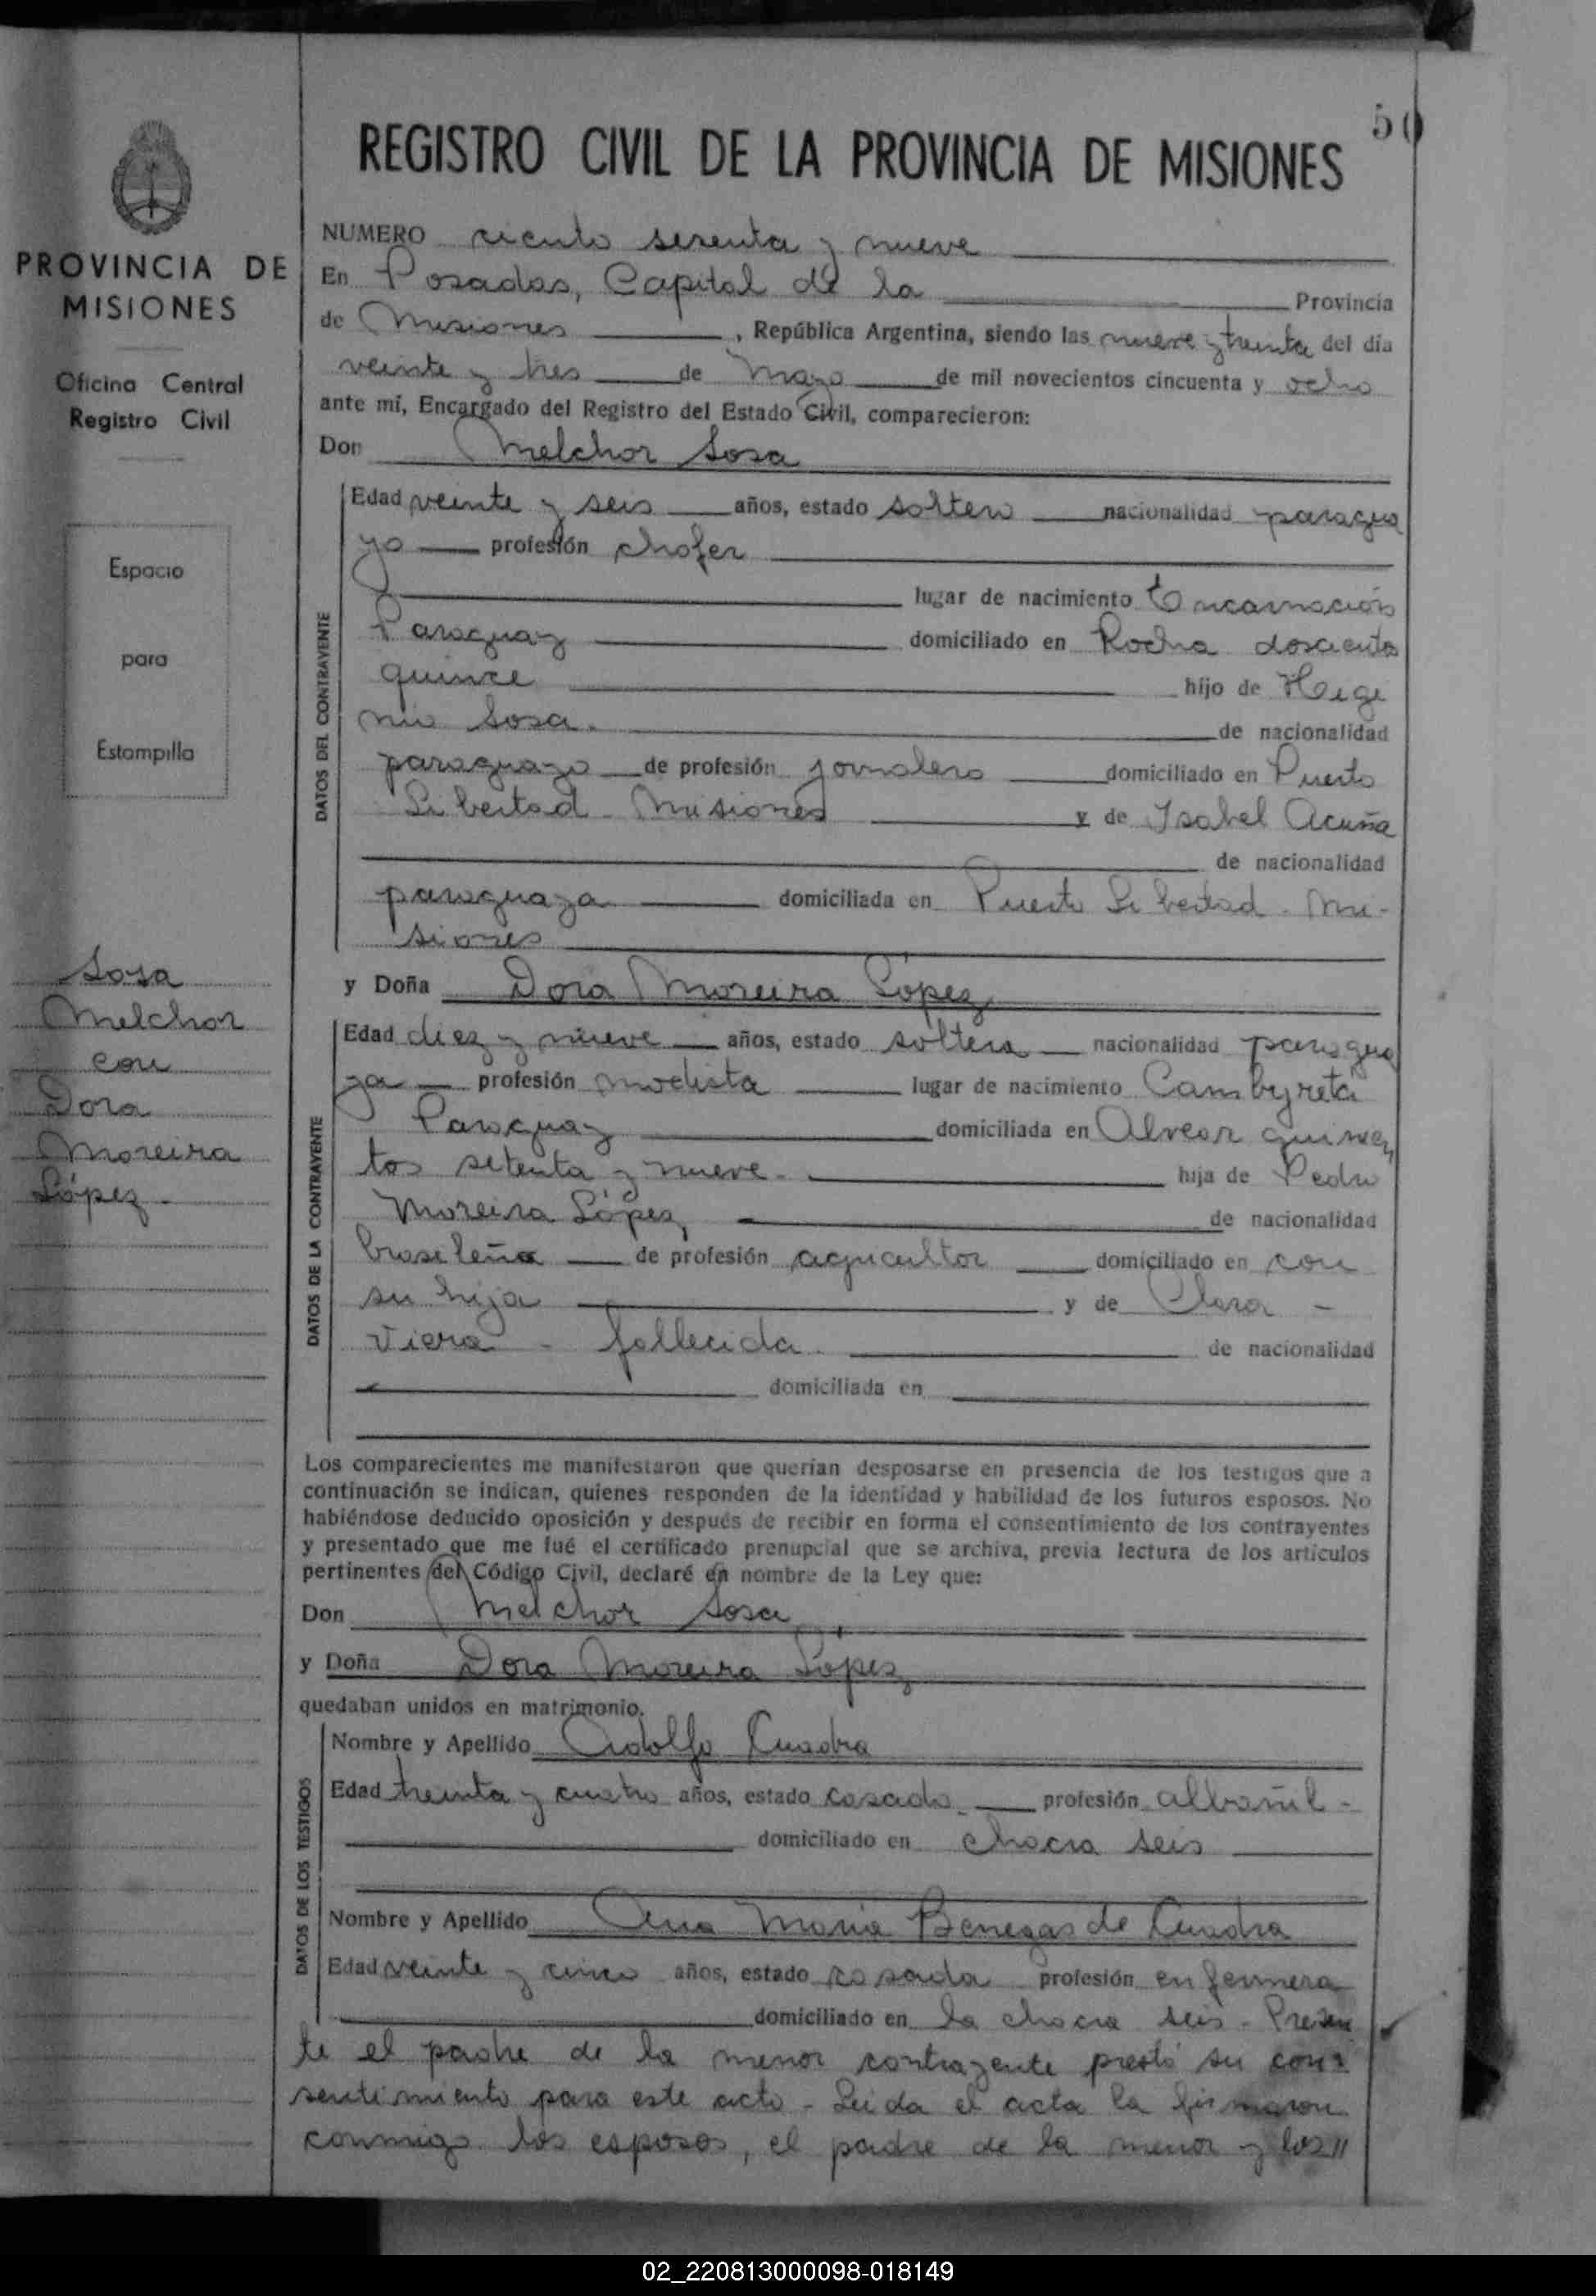 50
REGISTRO CIVIL DE LA PROVINCIA DE MISIONES
PROVINCIA DE
MISIONES
Oficina Central
Registro Civil
Espacio
para
Estampilla
Sosa
Melchor
con
Dora
Moreira
López -
NUMERO ciento sesenta y nueve
En Posadas, Capital de la Provincia
de Misiones , República Argentina, siendo las nueve y treinta del día
veinte y tres de Mayo de mil novecientos cincuenta y ocho
ante mí, Encargado del Registro del Estado Civil, comparecieron:
Don Melchor Sosa
DATOS DEL CONTRAYENTE
Edad veinte y seis años, estado soltero nacionalidad paragua
yo profesión chofer
lugar de nacimiento Encarnación
Paraguay domiciliado en Rocha doscientos
quince hijo de Higi
nio Sosa. de nacionalidad
paraguayo de profesión jornalero domiciliado en Puerto
Libertad - Misiones y de Isabel Acuña
de nacionalidad
paraguaya domiciliada en Puerto Libertad - Mi-
siones
y Doña Dora Moreira López
DATOS DE LA CONTRAYENTE
Edad diez y nueve años, estado soltera nacionalidad paragua
ya profesión modista lugar de nacimiento Cambyretá
Paraguay domiciliada en Alvear quinien
tos setenta y nueve - hija de Pedro
Moreira López, de nacionalidad
brasileña de profesión agricultor domiciliado en con
su hija y de Clara -
Viera - fallecida. de nacionalidad
domiciliada en
Los comparecientes me manifestaron que querían desposarse en presencia de los testigos que a
continuación se indican, quienes responden de la identidad y habilidad de los futuros esposos. No
habiéndose deducido oposición y después de recibir en forma el consentimiento de los contrayentes
y presentado que me fué el certificado prenupcial que se archiva, previa lectura de los artículos
pertinentes del Código Civil, declaré en nombre de la Ley que:
Don Melchor Sosa
y Doña Dora Moreira López
quedaban unidos en matrimonio.
DATOS DE LOS TESTIGOS
Nombre y Apellido Adolfo Cuadra
Edad treinta y cuatro años, estado casado profesión albañil -
domiciliado en chacra seis
Nombre y Apellido Ana María Benegas de Cuadra
Edad veinte y cinco años, estado casada profesión enfermera
domiciliado en la chacra seis - Presen
te el padre de la menor contrayente prestó su con
sentimiento para este acto - Leída el acta la firmaron
conmigo los esposos, el padre de la menor y los //
02_220813000098-018149